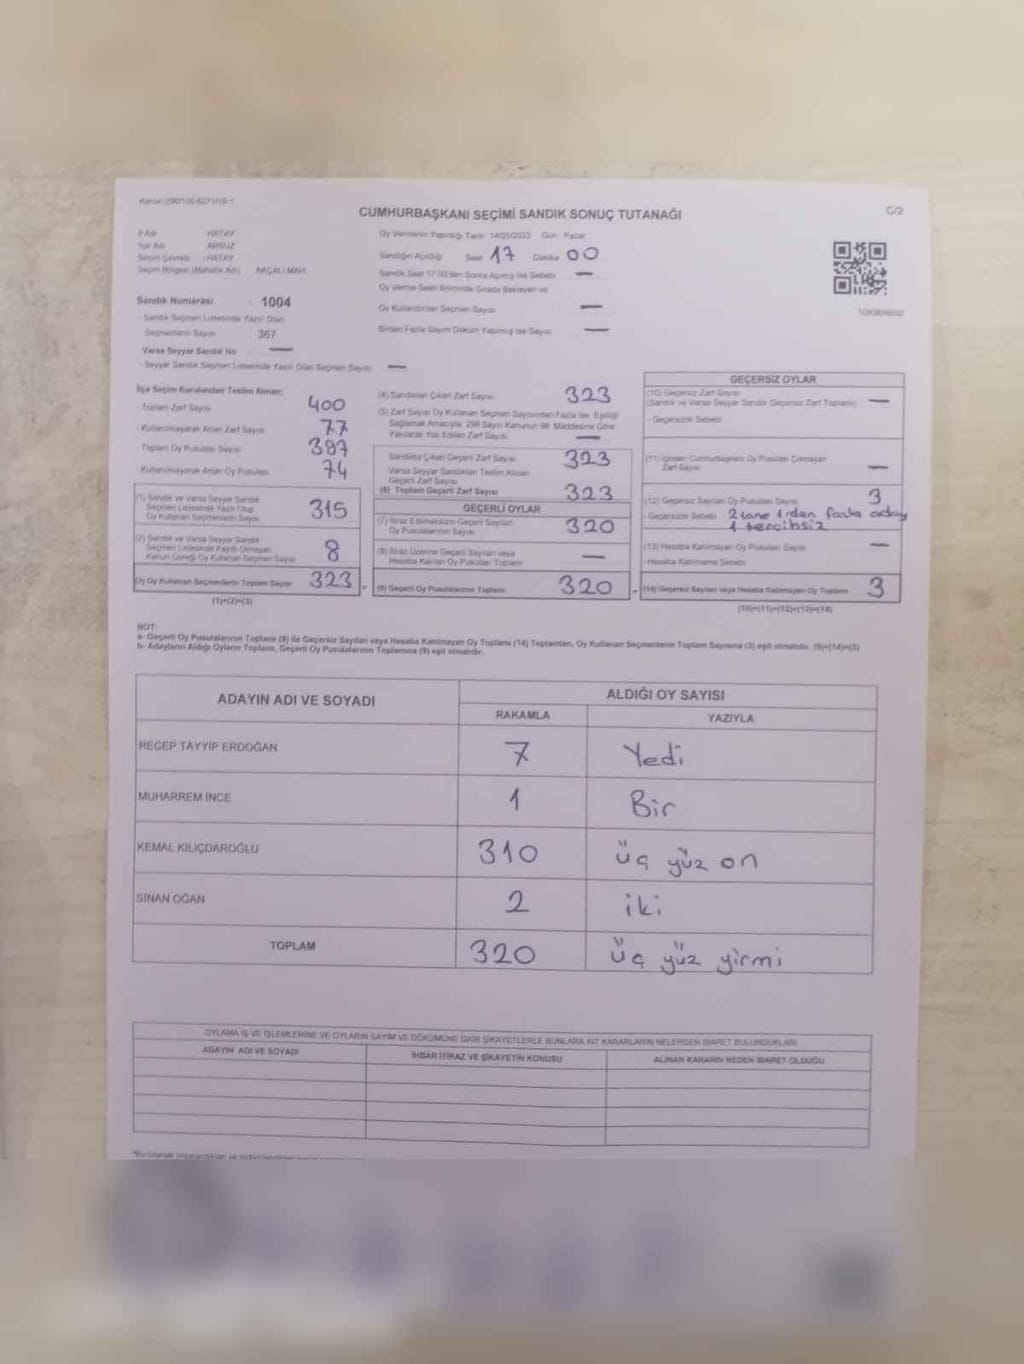 CUMHURBAŞKANI SEÇİMİ SANDIK SONUÇ TUTANAĞI
C/2
İl Adı : HATAY
İlçe Adı : ARSUZ
Seçim Çevresi : HATAY
Seçim Bölgesi (Mahalle Adı) : AKÇALI MAH.
Sandık Numarası : 1004
- Sandık Seçmen Listesinde Yazılı Olan
Seçmenlerin Sayısı : 367
Varsa Seyyar Sandık No : —
- Seyyar Sandık Seçmen Listesinde Yazılı Olan Seçmen Sayısı : —
Oy Vermenin Yapıldığı Tarih: 14/05/2023 Gün : Pazar
Sandığın Açıldığı Saat 17 Dakika 00
Sandık Saat 17:00'den Sonra Açılmış İse Sebebi —
Oy Verme Saati Bitiminde Sırada Bekleyen ve
Oy Kullandırılan Seçmen Sayısı —
Birden Fazla Sayım Döküm Yapılmış İse Sayısı —
İlçe Seçim Kurulundan Teslim Alınan;
- Toplam Zarf Sayısı 400
- Kullanılmayarak Artan Zarf Sayısı 77
- Toplam Oy Pusulası Sayısı 397
- Kullanılmayarak Artan Oy Pusulası 74
(1) Sandık ve Varsa Seyyar Sandık
Seçmen Listesinde Yazılı Olup
Oy Kullanan Seçmenlerin Sayısı 315
(2) Sandık ve Varsa Seyyar Sandık
Seçmen Listesinde Kayıtlı Olmayan
Kanun Gereği Oy Kullanan Seçmen Sayısı 8
(3) Oy Kullanan Seçmenlerin Toplam Sayısı 323
(1)+(2)=(3)
(4) Sandıktan Çıkan Zarf Sayısı 323
(5) Zarf Sayısı Oy Kullanan Seçmen Sayısından Fazla İse, Eşitliği
Sağlamak Amacıyla, 298 Sayılı Kanunun 98. Maddesine Göre
Yakılarak Yok Edilen Zarf Sayısı —
Sandıkta Çıkan Geçerli Zarf Sayısı 323
Varsa Seyyar Sandıktan Teslim Alınan
Geçerli Zarf Sayısı
(6) Toplam Geçerli Zarf Sayısı 323
GEÇERLİ OYLAR
(7) İtiraz Edilmeksizin Geçerli Sayılan
Oy Pusulalarının Sayısı 320
(8) İtiraz Üzerine Geçerli Sayılan veya
Hesaba Katılan Oy Pusulası Toplamı —
(9) Geçerli Oy Pusulalarının Toplamı 320
GEÇERSİZ OYLAR
(10) Geçersiz Zarf Sayısı
(Sandık ve Varsa Seyyar Sandık Geçersiz Zarf Toplamı) —
- Geçersizlik Sebebi
(11) İçinden Cumhurbaşkanı Oy Pusulası Çıkmayan
Zarf Sayısı —
(12) Geçersiz Sayılan Oy Pusulası Sayısı 3
- Geçersizlik Sebebi 2 tane 1'den fazla aday
1 tercihsiz
(13) Hesaba Katılmayan Oy Pusulası Sayısı —
- Hesaba Katılmama Sebebi
(14) Geçersiz Sayılan veya Hesaba Katılmayan Oy Toplamı 3
(10)+(11)+(12)+(13)=(14)
NOT:
a- Geçerli Oy Pusulalarının Toplamı (9) ile Geçersiz Sayılan veya Hesaba Katılmayan Oy Toplamı (14) Toplamları, Oy Kullanan Seçmenlerin Toplam Sayısına (3) eşit olmalıdır. (9)+(14)=(3)
b- Adayların Aldığı Oyların Toplamı, Geçerli Oy Pusulalarının Toplamına (9) eşit olmalıdır.
ADAYIN ADI VE SOYADI
ALDIĞI OY SAYISI
RAKAMLA YAZIYLA
RECEP TAYYİP ERDOĞAN 7 Yedi
MUHARREM İNCE 1 Bir
KEMAL KILIÇDAROĞLU 310 üç yüz on
SİNAN OĞAN 2 iki
TOPLAM 320 üç yüz yirmi
OYLAMA İŞ VE İŞLEMLERİNE VE OYLARIN SAYIM VE DÖKÜMÜNE DAİR ŞİKAYETLERLE BUNLARA AİT KARARLARIN NELERDEN İBARET BULUNDUKLARI
ADAYIN ADI VE SOYADI İHBAR İTİRAZ VE ŞİKAYETİN KONUSU ALINAN KARARIN NEDEN İBARET OLDUĞU